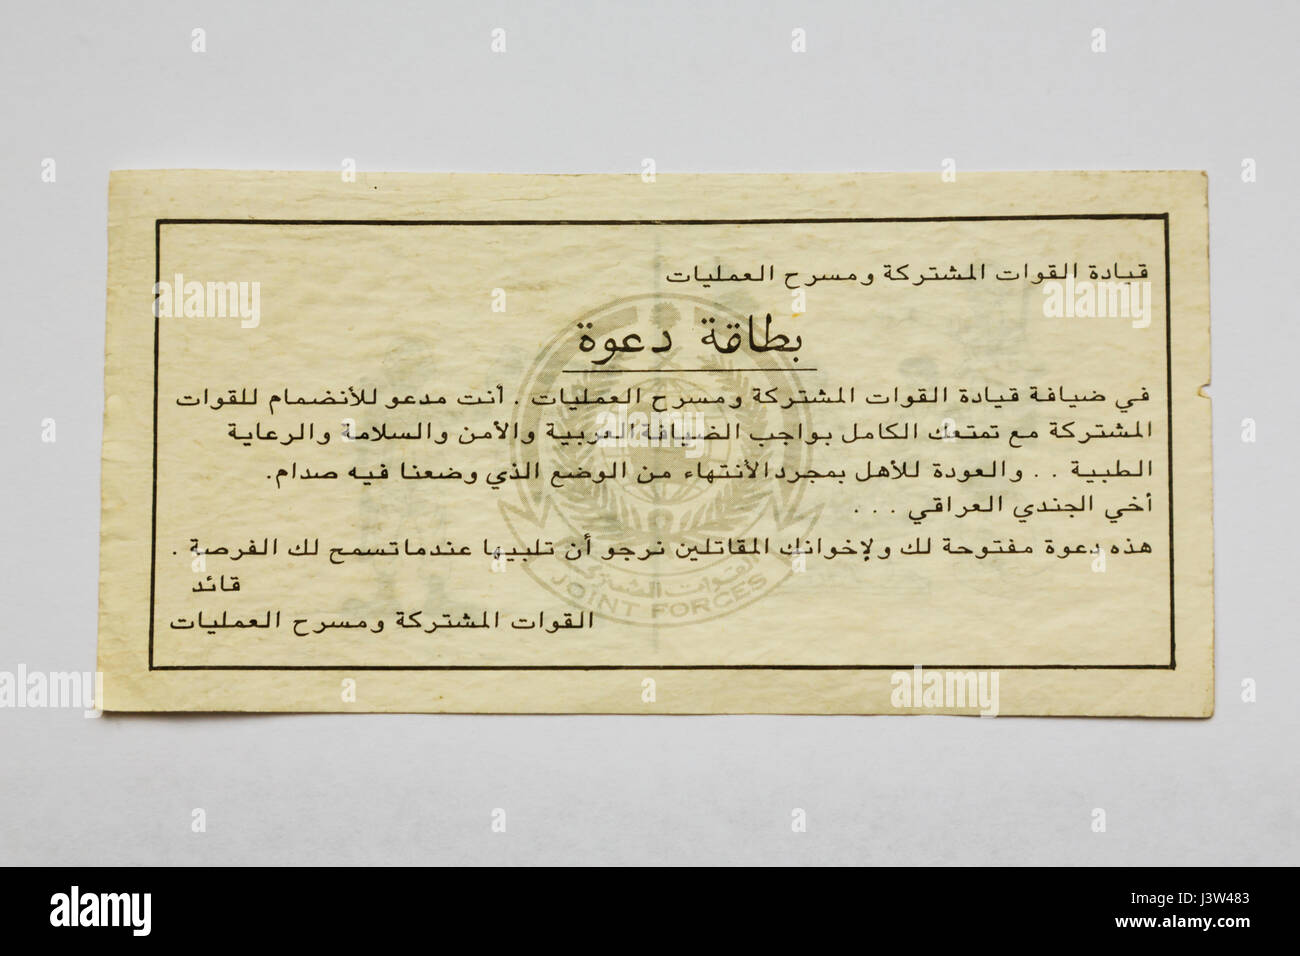 قيادة القوات المشتركة ومسرح العمليات
بطاقة دعوة
في ضيافة قيادة القوات المشتركة ومسرح العمليات . أنت مدعو للأنضمام للقوات
المشتركة مع تمتعك الكامل بواجب الضيافة العربية والأمن والسلامة والرعاية
الطبية . . والعودة للأهل بمجرد الأنتهاء من الوضع الذي وضعنا فيه صدام.
أخي الجندي العراقي . . .
هذه دعوة مفتوحة لك ولإخوانك المقاتلين نرجو أن تلبيها عندما تسمح لك الفرصة .
قائد
القوات المشتركة ومسرح العمليات
القوات المشتركة
JOINT FORCES
alamy stock photo
alamy stock photo
alamy stock photo
alamy stock photo
alamy
J3W483
www.alamy.com